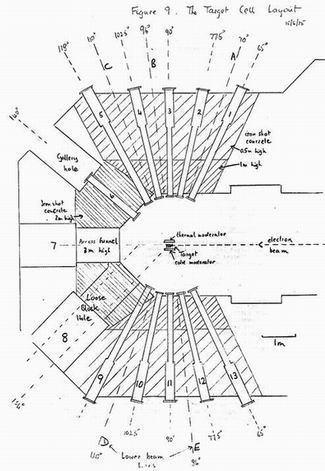 Figure 9. The Target Cell Layout
110° 10° 102.5° 95° 90° 77.5° 70° 65°
C B A
5 4 3 2 1
iron shot concrete
0.5m high
1m high
gallery
hole
6
Iron shot
concrete
2m high
7
Access tunnel
3m high
thermal moderator
Target
cold moderator
electron
beam
Loose
Block
Hole
8
1m
9 10 11 12 13
D E
110° 90° 95° 77.5° 65°
Lower beam